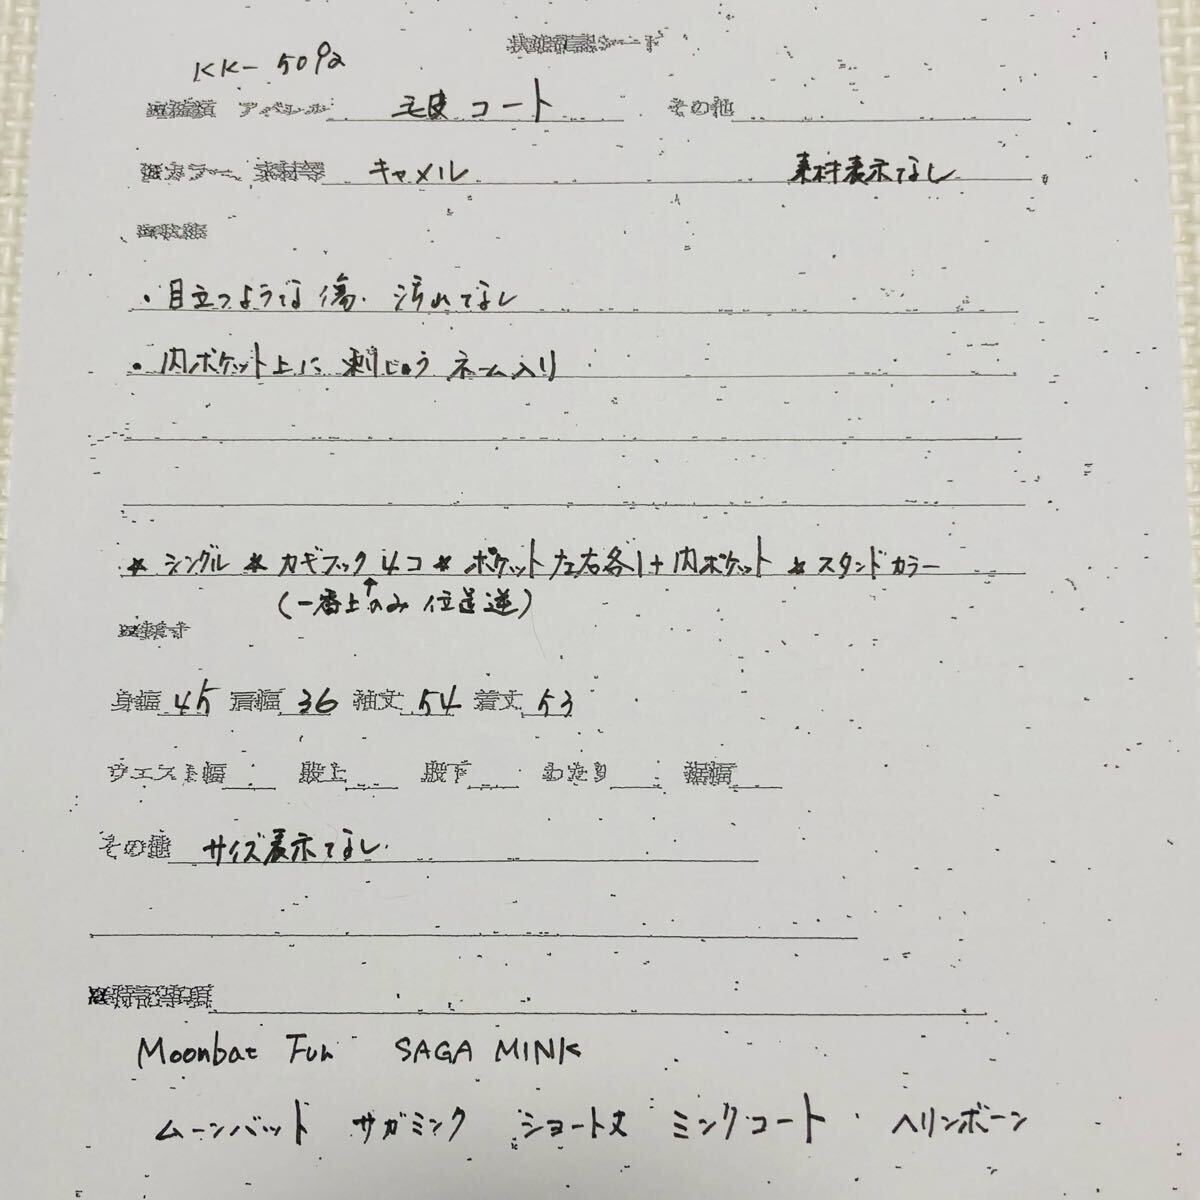 状態確認シート
KK-5092
アパレル 毛皮 コート その他
カラー 素材等 キャメル 素材表示なし
・目立つような傷・汚れなし
・内ポケット上に 刺しゅう ネーム入り
* シングル * カギフック 4コ * ポケット 左右各1+内ポケット * スタンドカラー
(一番上のみ 位置逆)
身幅 45 肩幅 36 袖丈 54 着丈 53
ウエスト幅 股上 股下 わたり 裾幅
その他 サイズ表示なし
特記事項
Moonbat Fur SAGA MINK
ムーンバット サガミンク ショート丈 ミンクコート ・ ヘリンボーン